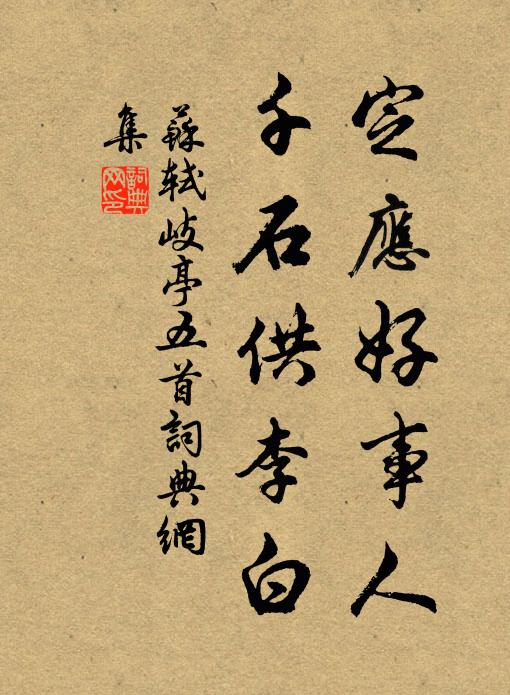 定應好事人
千石供李白
蘇軾岐亭五首詞典網
集
詞典網印